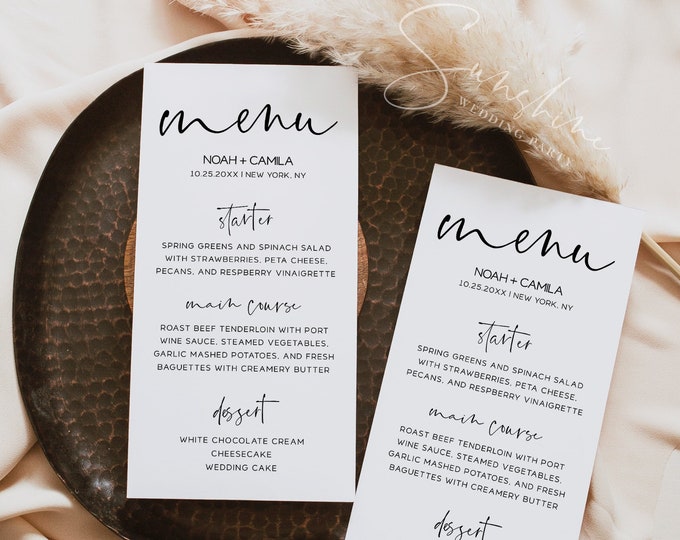 menu
NOAH + CAMILA
10.25.20XX | NEW YORK, NY
starter
SPRING GREENS AND SPINACH SALAD
WITH STRAWBERRIES, PETA CHEESE,
PECANS, AND RESPBERRY VINAIGRETTE
main course
ROAST BEEF TENDERLOIN WITH PORT
WINE SAUCE, STEAMED VEGETABLES,
GARLIC MASHED POTATOES, AND FRESH
BAGUETTES WITH CREAMERY BUTTER
dessert
WHITE CHOCOLATE CREAM
CHEESECAKE
WEDDING CAKE
menu
NOAH + CAMILA
10.25.20XX | NEW YORK, NY
starter
SPRING GREENS AND SPINACH SALAD
WITH STRAWBERRIES, PETA CHEESE,
PECANS, AND RESPBERRY VINAIGRETTE
main course
ROAST BEEF TENDERLOIN WITH PORT
WINE SAUCE, STEAMED VEGETABLES,
GARLIC MASHED POTATOES, AND FRESH
BAGUETTES WITH CREAMERY BUTTER
dessert
Sunshine
WEDDING PARTY